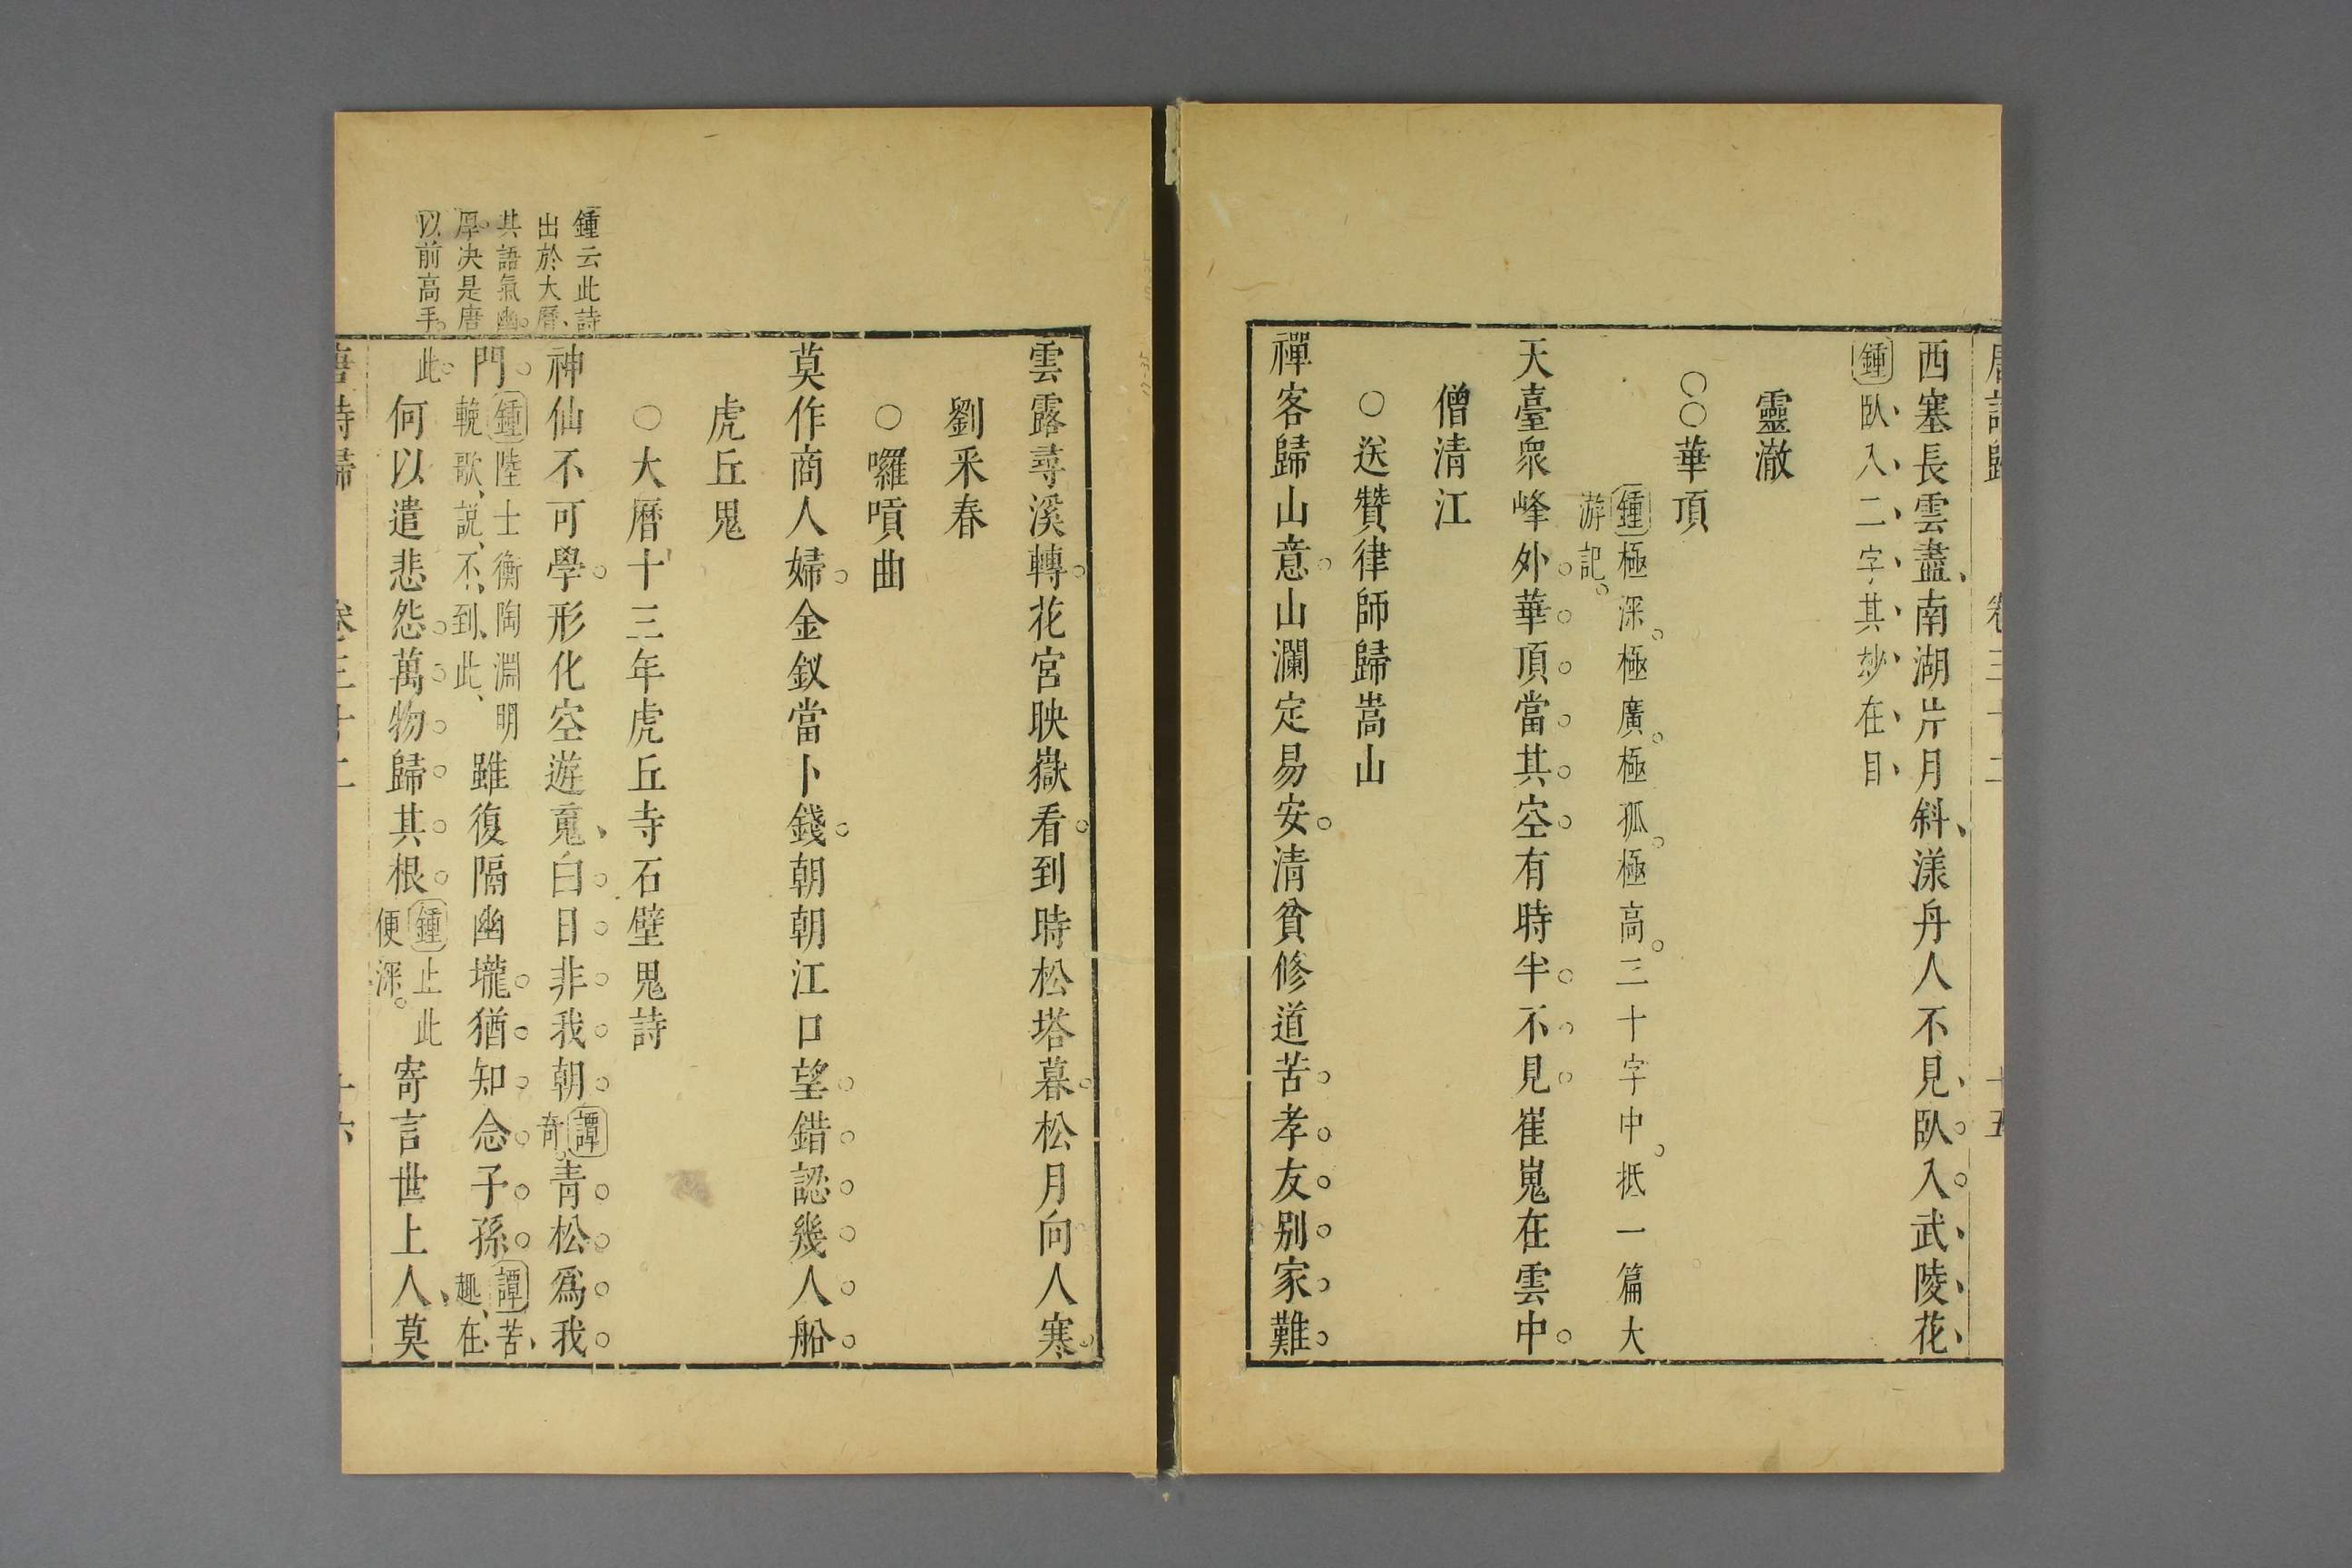 唐詩歸 卷三十二 十五
西塞長雲盡南湖片月斜漾舟人不見臥入武陵花
鍾臥入二字其玅在目
靈澈
○○華頂
鍾極深極廣極孤極高二十字中抵一篇大
游記
天臺衆峰外華頂當其空有時半不見崔嵬在雲中
僧清江
○送贊律師歸嵩山
禪客歸山意山瀾定易安清貧修道苦孝友別家難
雲露尋溪轉花宮映嶽看到時松塔暮松月向人寒
劉釆春
○囉嗊曲
莫作商人婦金釵當卜錢朝朝江口望錯認幾人船
虎丘鬼
○大曆十三年虎丘寺石壁鬼詩
鍾云此詩
出於大曆
其語氣幽
厚決是唐
以前高手
神仙不可學形化空遊䰟白日非我朝譚奇青松爲我
門鍾陸士衡陶淵明輓歌說不到此雖復隔幽壠猶知念子孫譚苦趣在
此何以遣悲怨萬物歸其根鍾止此便深寄言世上人莫
唐詩歸 卷三十二 十六